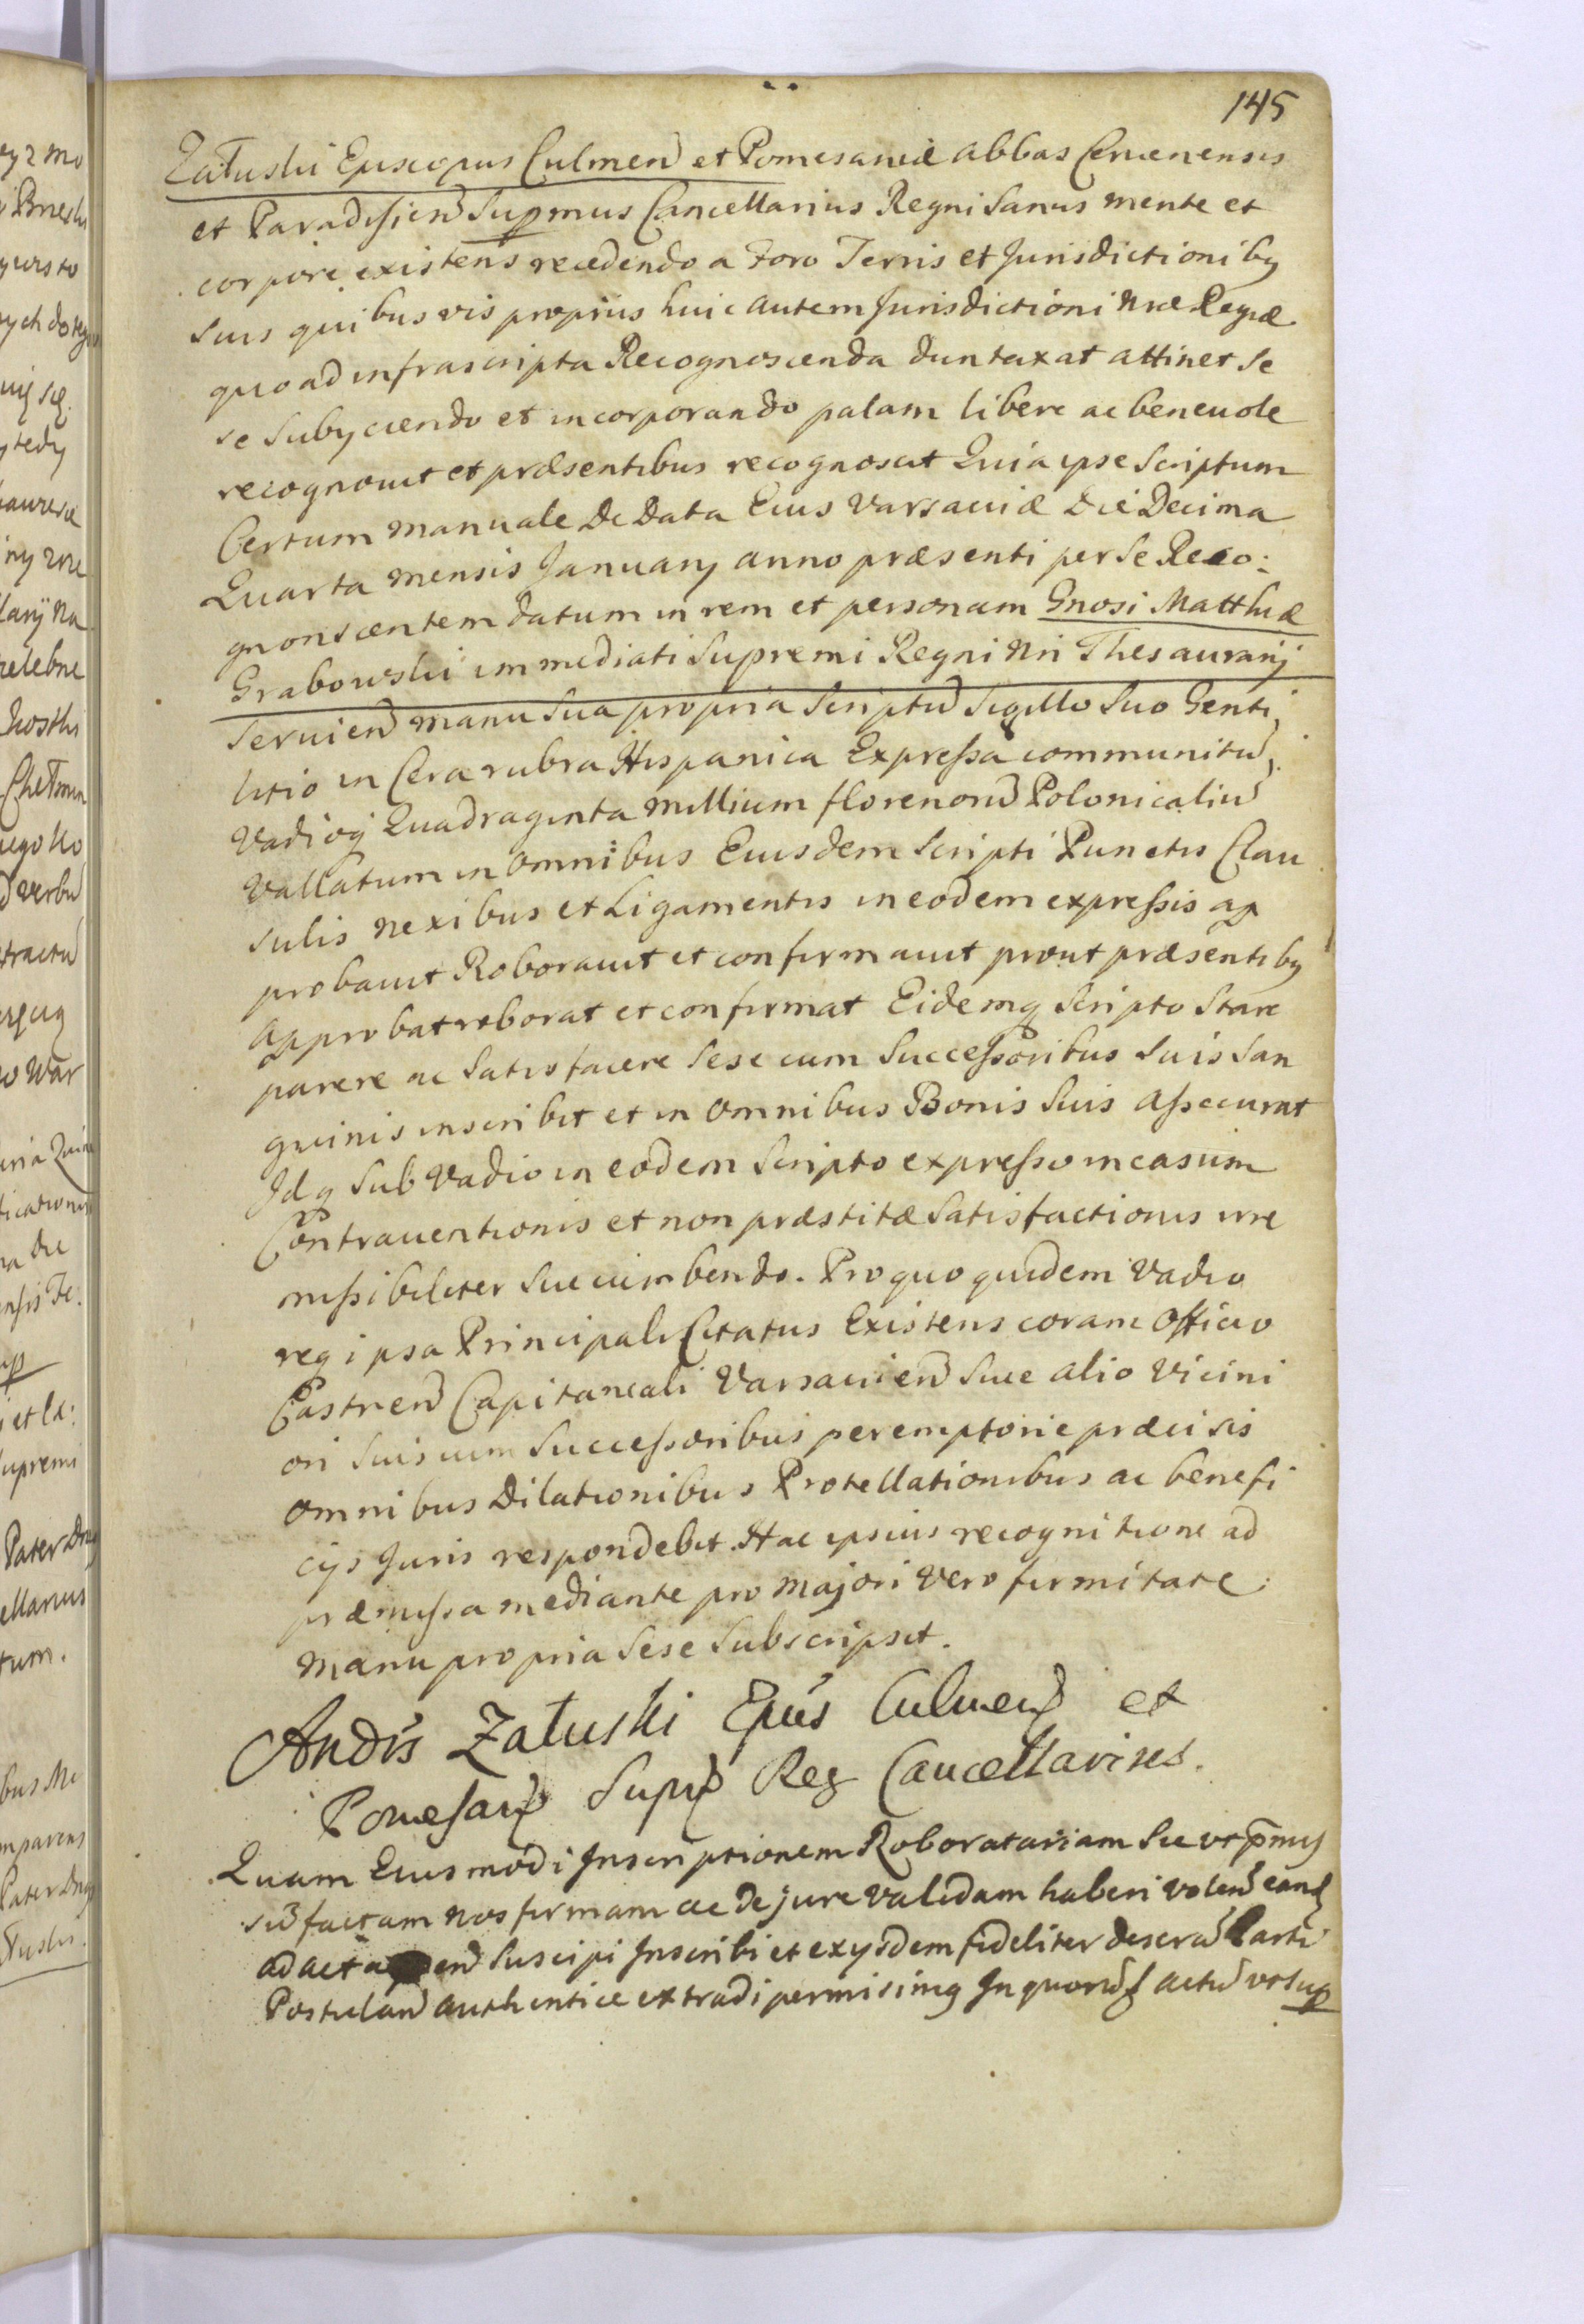 145
Załuski Episcopus Culmen et Pomesaniæ abbas Cervenensis
et Paradisien Supmus Cancellarius Regni Sanus mente et
corpore existens recedendo a Foro Terris et Jurisdictioniby
suis quibus vis propriis huic autem Jurisdictioni nræ Regiæ
quoad infrascripta Recognoscenda duntaxat attinet se
se subyciendo et incorporando palam libere ac beneuole
recognouit et præsentibus recognoscit Quia ipse Scriptum
Certum manuale De Data Eius Varsauiæ Die Decima
Quarta mensis January anno præsenti per se Reco:
gnonscentem datum in rem et personam Gnosi Matthiæ
Grabowski immediati Supremi Regni Nri Thesaurarij
Seruien manu sua propria Scriptu Sigillo Suo Genti
litio in Cera rubra Hispanica Expressa communitu,
Vadioq Quadraginta millium florenoru Polonicaliu
Vallatum in omnibus Eiusdem Scripti Punctis Clau
sulis nexibus et Ligamentis in eodem expressis ap
probauit Roborauit et confirmauit prout præsentiby
Approbat roborat et confirmat Eidemq Scripto Stare
parere ac Satisfacere sese cum Successoribus suis San
guinis inscribit et in omnibus Bonis suis assecurat
Idq sub Vadio in eodem Scripto expresso in casum
Contrauentionis et non præstitæ Satisfactionis irre
missibiliter succumbendo. Pro quo quidem Vadio
reqipsa Principali Citatus Existens coram Officio
Castren Capitaneali Varsauien siue alio Vicini
ori suis cum Successoribus peremptorie præcisis
omnibus Dilationibus Protellationibus ac benefi
cijs Juris respondebit. Hac ipsius recognitione ad
præmissa mediante pro majori vero firmitate
manu propria sese subscripsit.
Andr̃s Załuski Epus Culmen et
Pomesan Supr Reg Cancellarius.
Quam Eiusmodi Inscriptionem Roboratariam sic ut p̄mis
su factam nos firmam ac De jure validam haberi volen eand
ad acta en suscipi Inscribi et ex ysdem fideliter descrā Parti
Postulan authentice extradi permisimq In quoru f actu ut sup